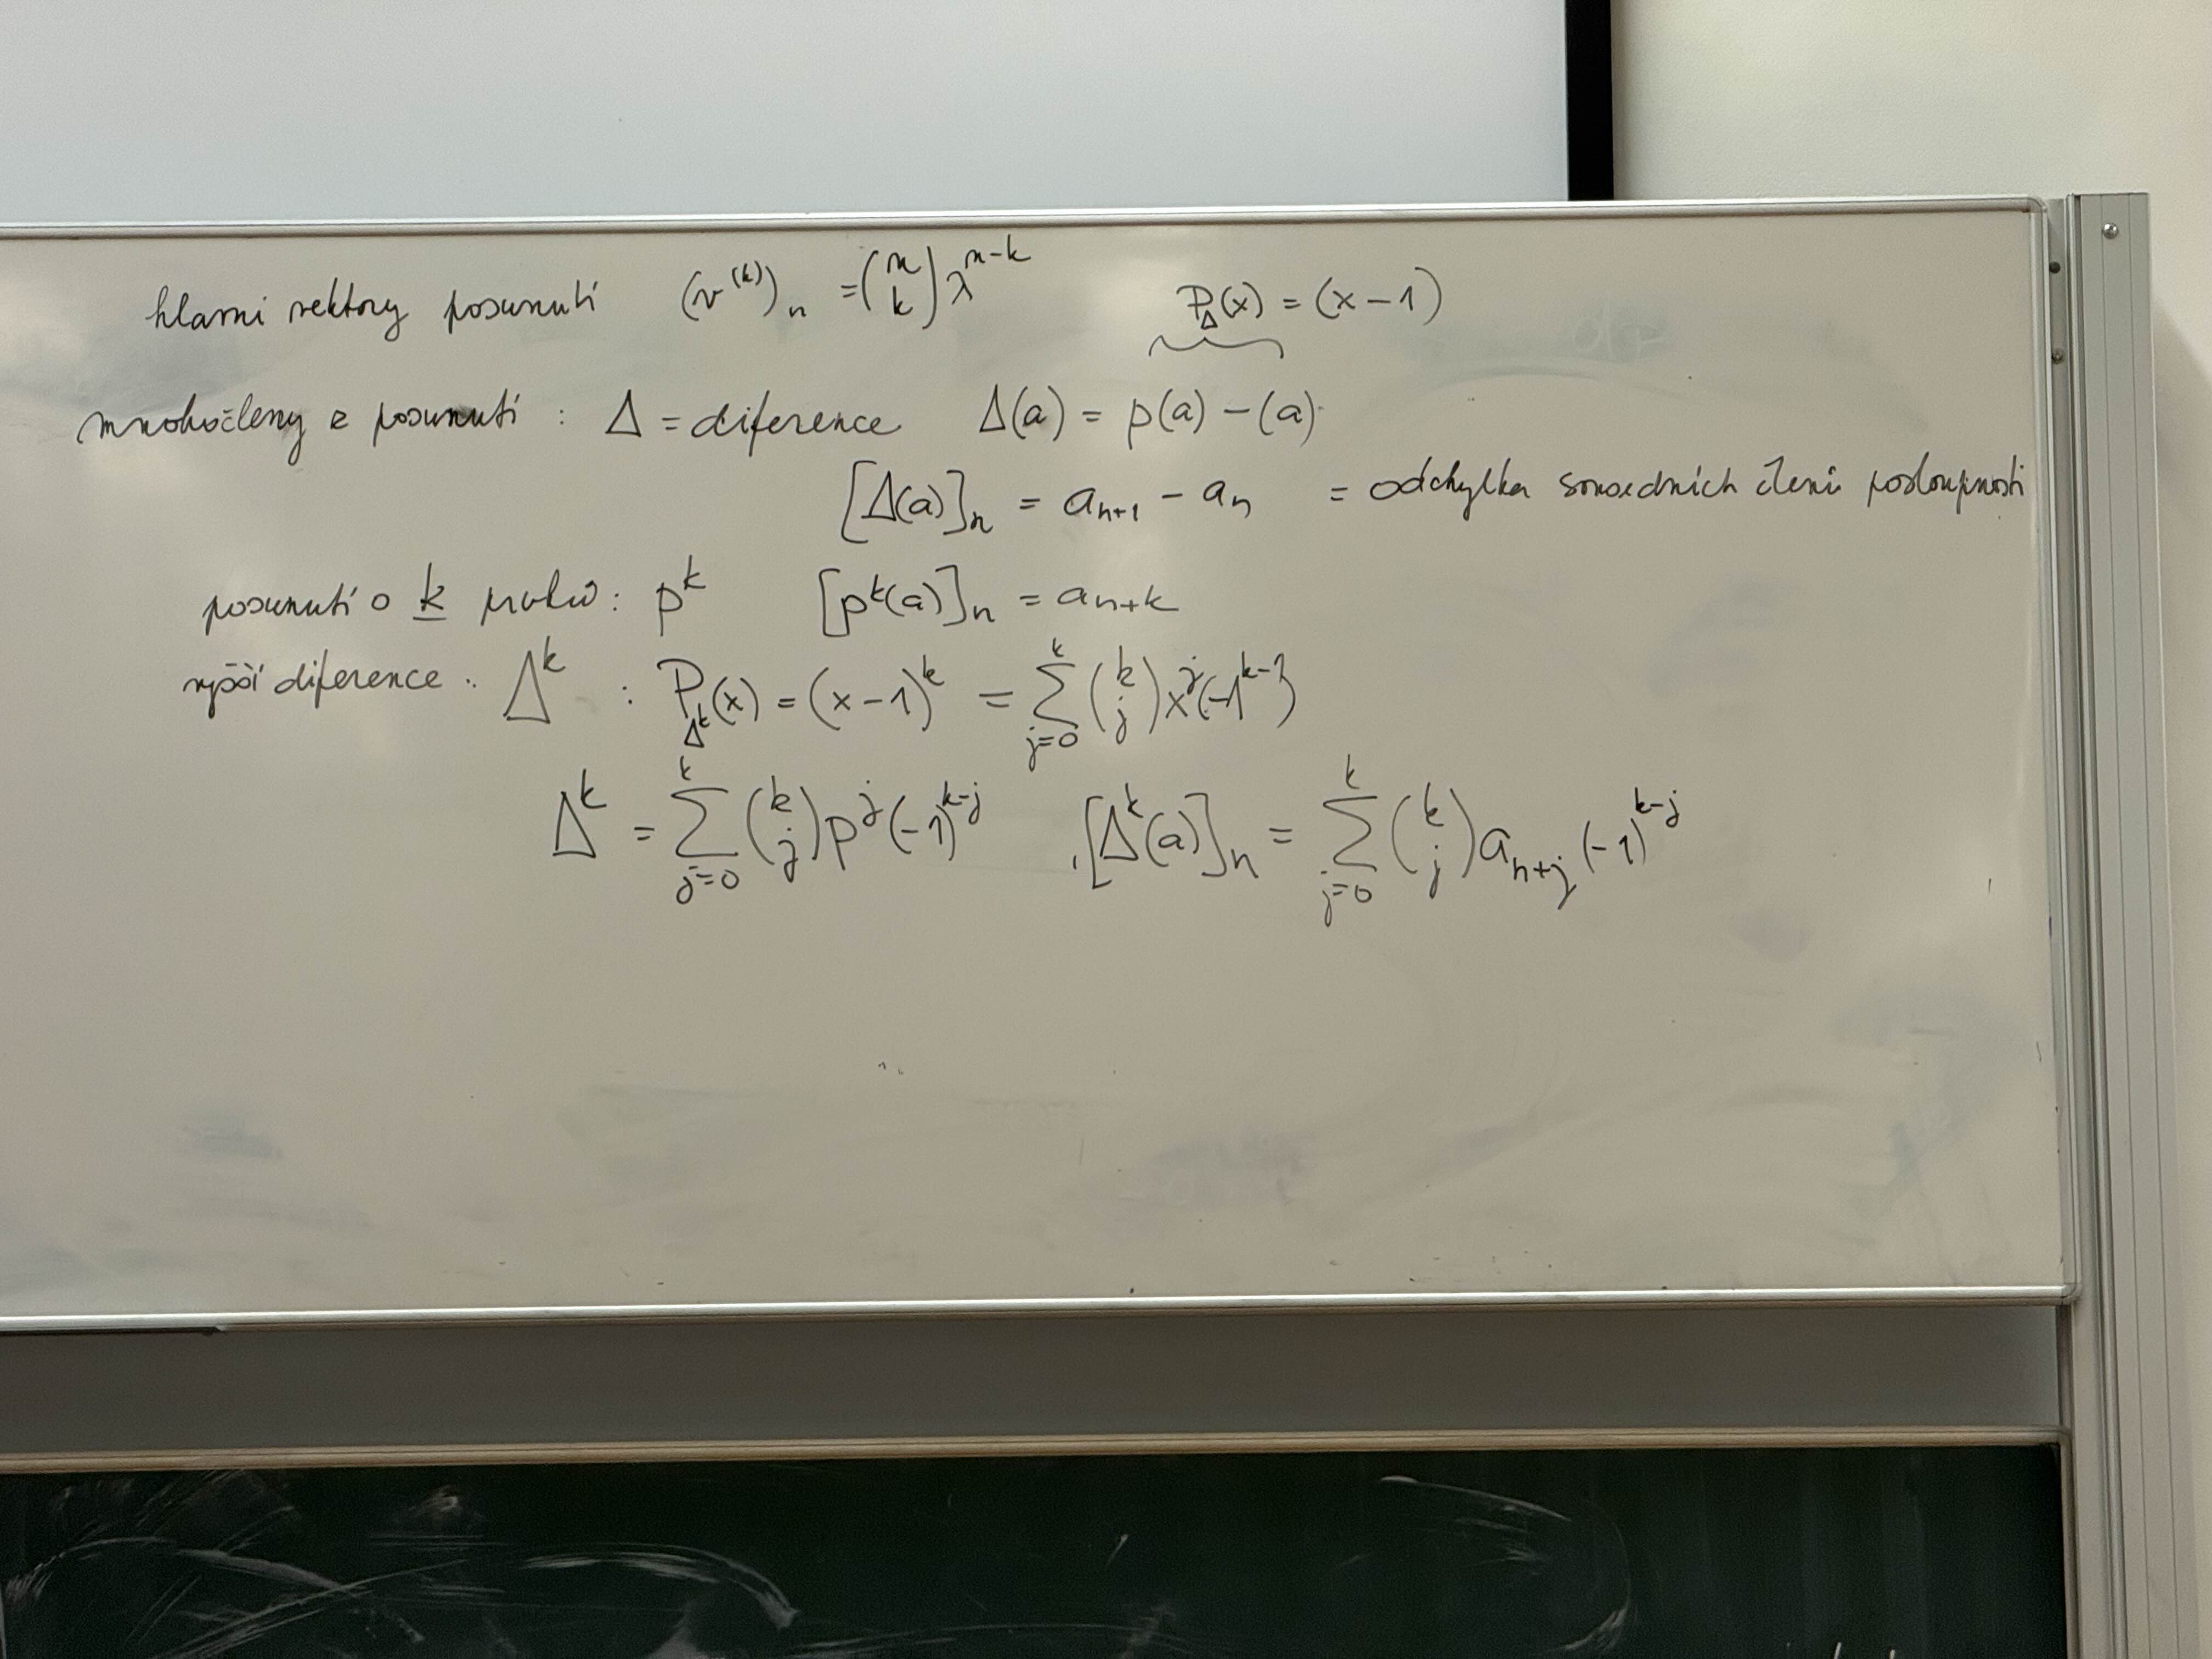 hlavní vektory posunutí (v^(k))_n = (n k) λ^{n-k} P_Δ(x) = (x-1)
mnohočleny z posunutí : Δ = diference Δ(a) = p(a) - (a)
[Δ(a)]_n = a_{n+1} - a_n = odchylka sousedních členů posloupnosti
posunutí o k prvků : p^k [p^k(a)]_n = a_{n+k}
vyšší diference : Δ^k : P_{Δ^k}(x) = (x-1)^k = ∑_{j=0}^{k} (k j) x^j (-1)^{k-j}
Δ^k = ∑_{j=0}^{k} (k j) p^j (-1)^{k-j} [Δ^k(a)]_n = ∑_{j=0}^{k} (k j) a_{n+j} (-1)^{k-j}